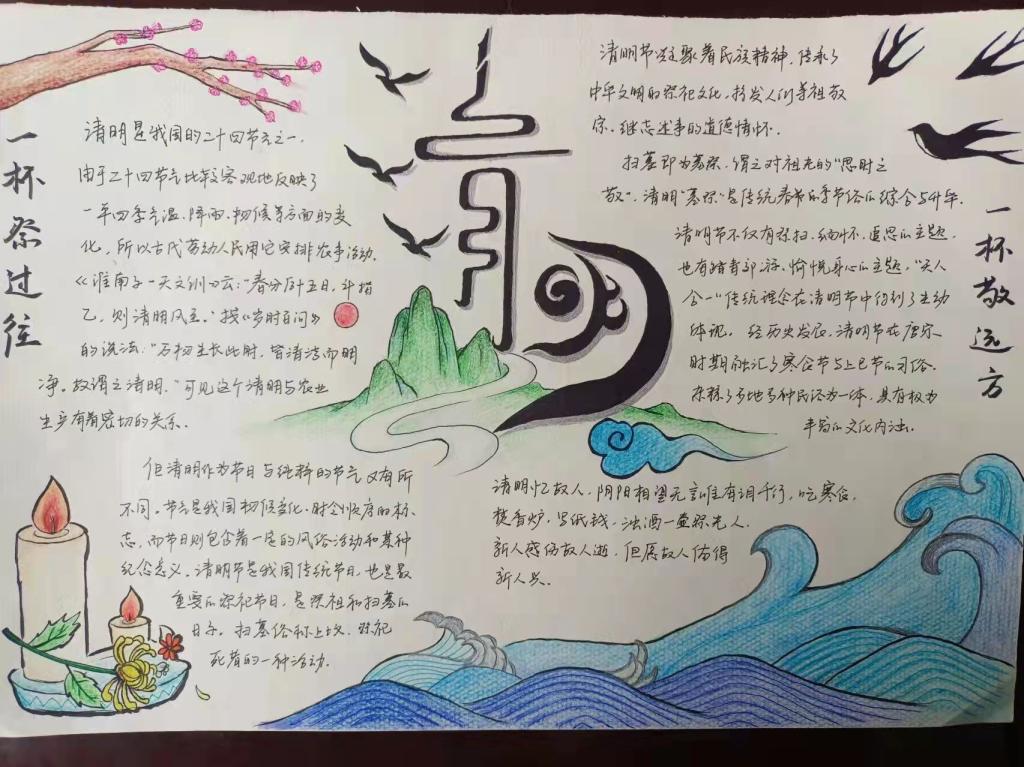 清明
一杯祭过往
清明是我国的二十四节气之一.
由于二十四节气比较客观地反映了
一年四季气温、降雨、物候等方面的变
化，所以古代劳动人民用它安排农事活动.
《淮南子一天文训》云:"春分后十五日,斗指
乙，则清明风至."按《岁时百问》
的说法:"万物生长此时，皆清洁而明
净。故谓之清明."可见这个清明与农业
生产有着密切的关系.
但清明作为节日与纯粹的节气又有所
不同。节气是我国物候变化、时令顺序的标
志，而节日则包含着一定的风俗活动和某种
纪念意义。清明节是我国传统节日,也是最
重要的祭祀节日，是祭祖和扫墓的
日子。扫墓俗称上坟、祭祀
死者的一种活动.
清明节凝聚着民族精神，传承了
中华文明的祭祀文化，抒发人们尊祖敬
宗、继志述事的道德情怀.
扫墓即为墓祭，谓之对祖先的"思时之
敬".清明"墓祭"是传统春节的季节俗的综合与升华.
清明节不仅有祭扫、缅怀、追思的主题,
也有踏青郊游、愉悦身心的主题,"天人
合一"传统理念在清明节中得到了生动
体现。经历史发展,清明节在唐宋
时期融汇了寒食节与上巳节的习俗.
杂糅了多地多种民俗为一体，具有极为
丰富的文化内涵.
一杯敬远方
清明忆故人，阴阳相望无言唯有泪千行，吃寒食,
提香炉，里纸钱，浊酒一壶祭先人.
新人感伤故人逝，但愿故人佑得
新人兴.